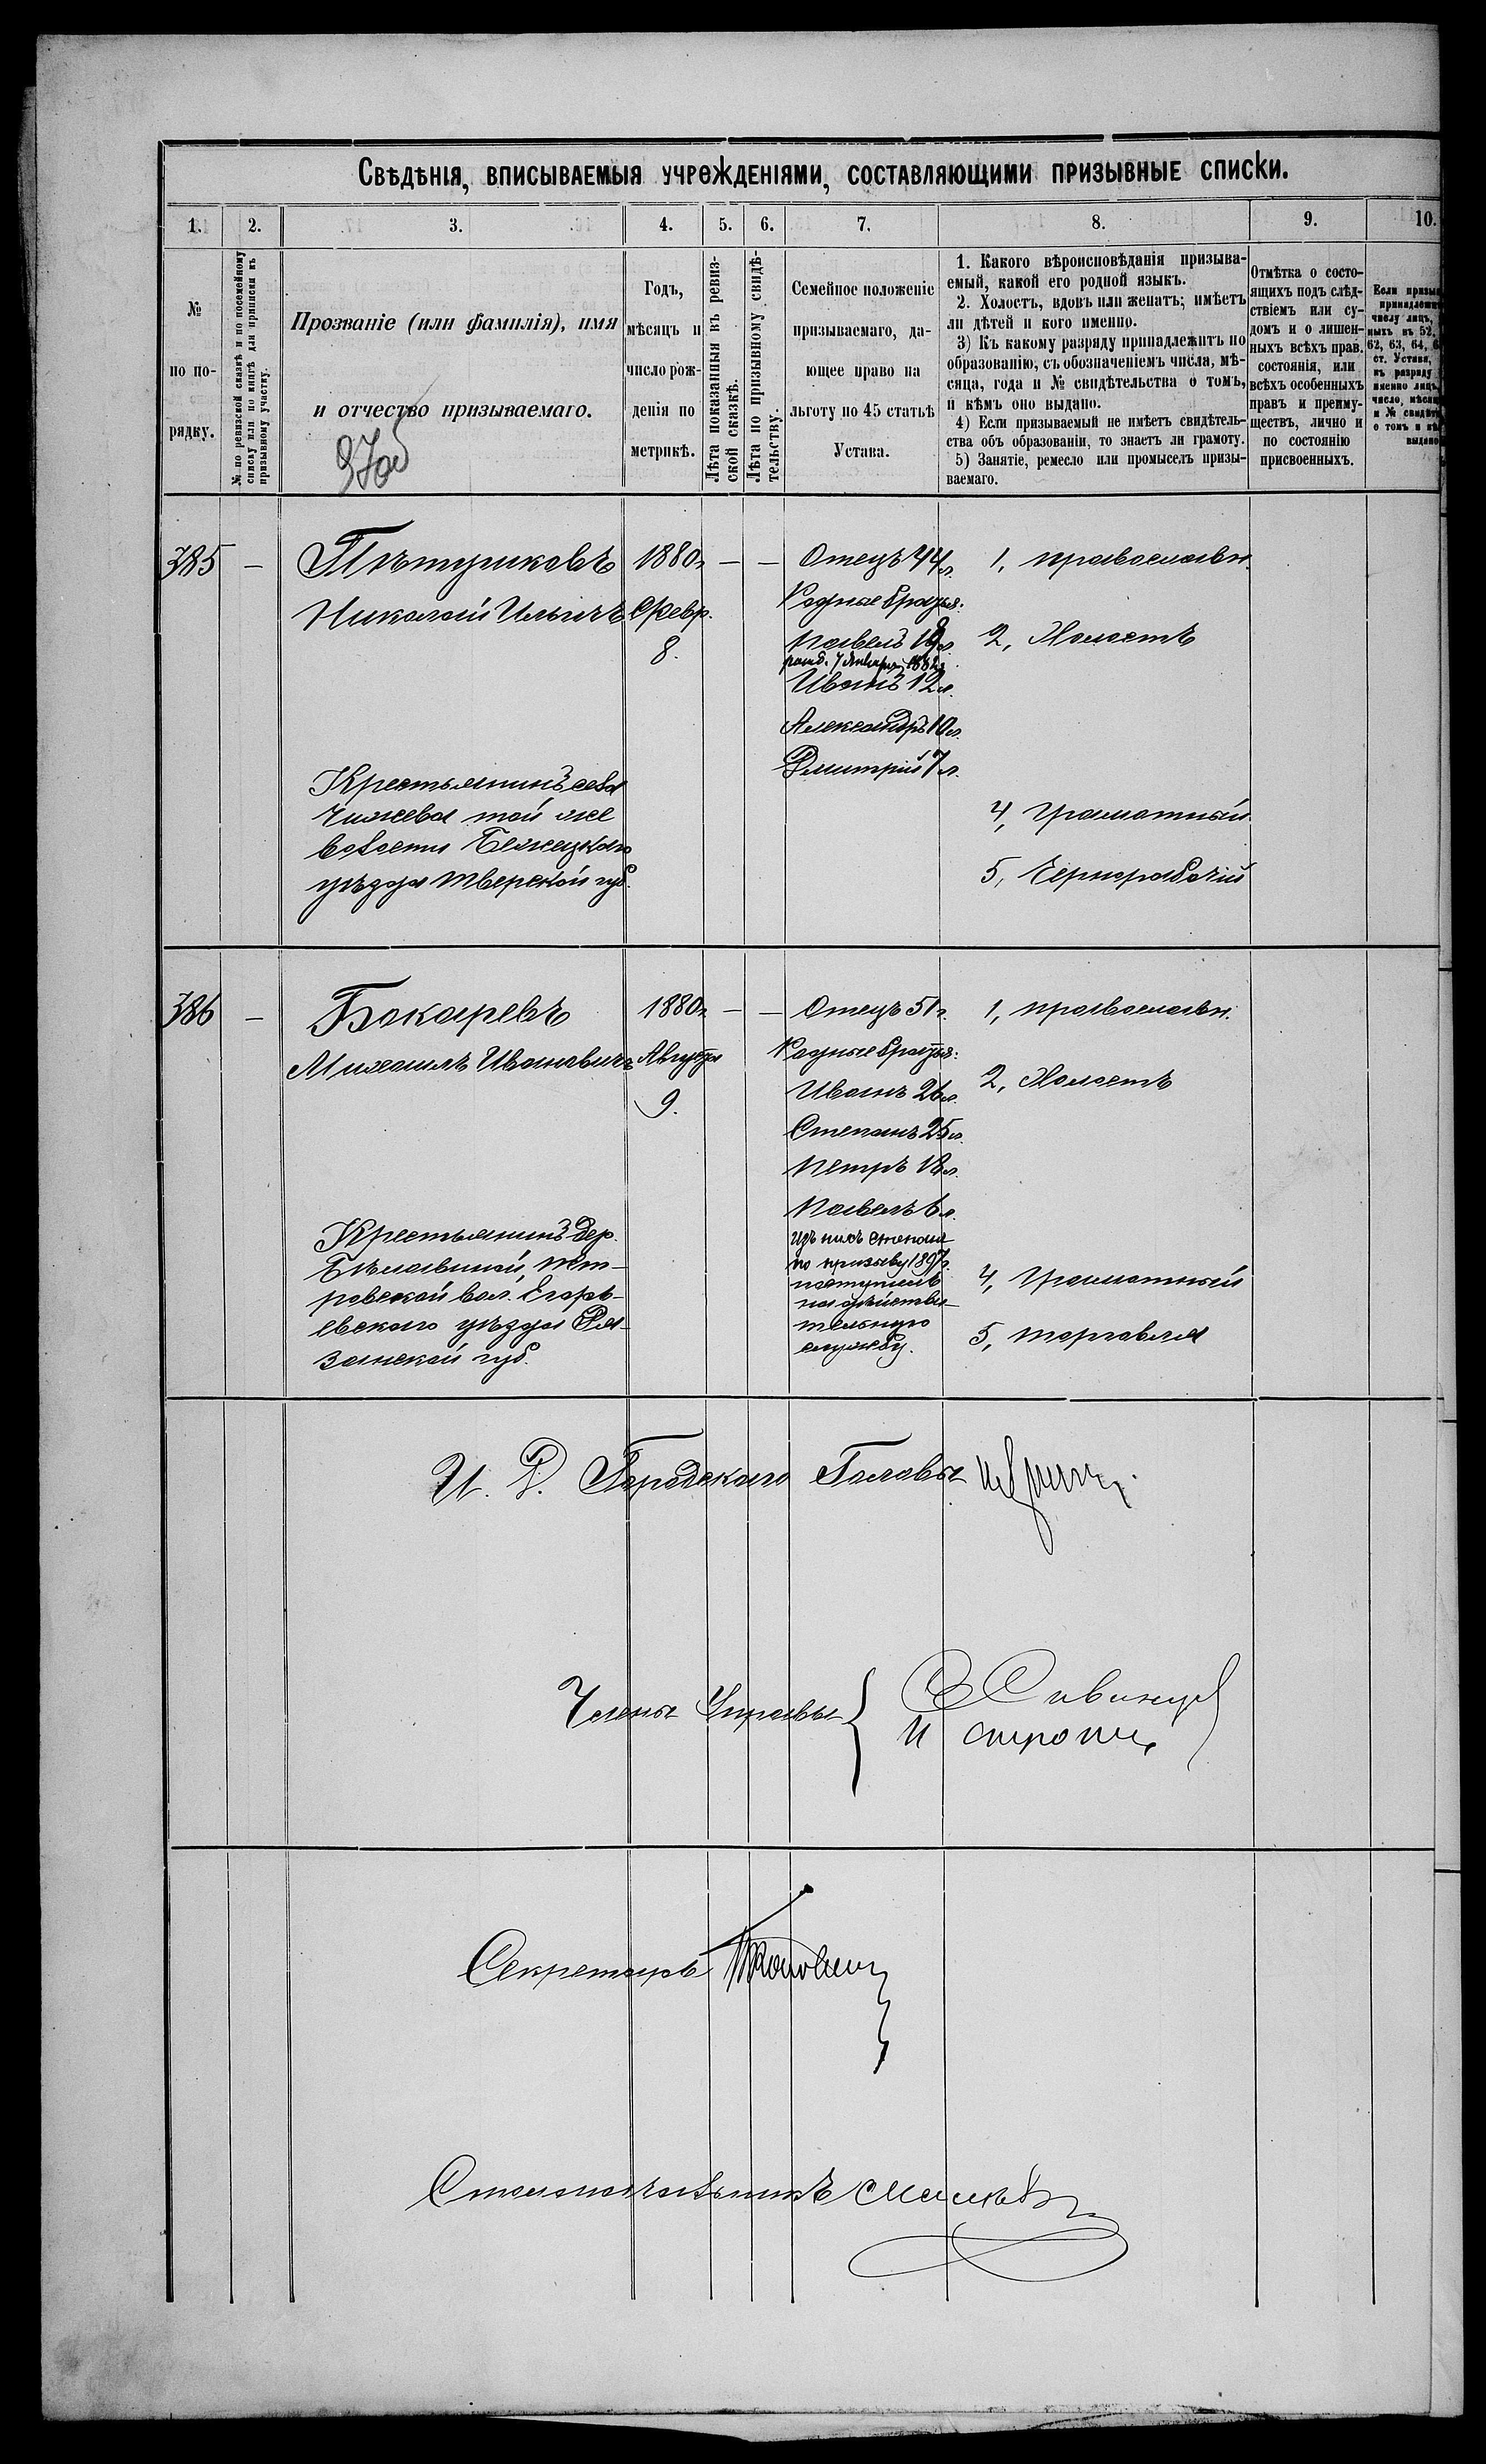 Свѣдѣнія, вписываемыя учрежденіями, составляющими призывные списки.
1. 2. 3. 4. 5. 6. 7. 8. 9. 10.
№
по по-
рядку.
№ по ревизской сказкѣ и по посемейному
списку или по книгѣ для приписки къ
призывному участку.
Прозваніе (или фамилія), имя
и отчество призываемаго.
Годъ,
мѣсяцъ и
число рож-
денія по
метрикѣ.
Лѣта показанныя въ ревиз-
ской сказкѣ.
Лѣта по призывному свидѣ-
тельству.
Семейное положеніе
призываемаго, да-
ющее право на
льготу по 45 статьѣ
Устава.
1. Какого вѣроисповѣданія призыва-
емый, какой его родной языкъ.
2. Холостъ, вдовъ или женатъ; имѣетъ
ли дѣтей и кого именно.
3) Къ какому разряду принадлежитъ по
образованію, съ обозначеніемъ числа, мѣ-
сяца, года и № свидѣтельства о томъ,
и кѣмъ оно выдано.
4) Если призываемый не имѣетъ свидѣтель-
ства объ образованіи, то знаетъ ли грамоту.
5) Занятіе, ремесло или промыселъ призы-
ваемаго.
Отмѣтка о состо-
ящихъ подъ слѣд-
ствіемъ или су-
домъ и о лишен-
ныхъ всѣхъ прав.
состоянія, или
всѣхъ особенныхъ
правъ и преиму-
ществъ, лично и
по состоянію
присвоенныхъ.
Если призы
принадлеж
числу лицъ,
ныхъ въ 52,
62, 63, 64,
ст. Устава,
къ разряду
именно лицъ,
число, мѣсяц
и № свидѣт
о томъ и кѣ
выдано
385
—
Пѣтуриковъ
Николай Ильичъ
Крестьянинъ села
Чижева той же
волости Бежецкаго
уѣзда Тверской губ.
1880 г.
Февр.
8.
—
—
Отецъ 44 л.
Родные братья:
Павелъ 18 л.
рожд. 7 января 1882 г.
Иванъ 12 л.
Александръ 10 л.
Дмитрій 7 л.
1, православн.
2, Холостъ
4, Грамотный
5, Чернорабочій
386
—
Бокаревъ
Михаилъ Ивановичъ
Крестьянинъ дер.
Бѣлавиной, Пет-
ровской вол. Егорь-
евскаго уѣзда Ря-
занской губ.
1880 г.
Августа
9.
—
—
Отецъ 51 г.
Родные братья:
Иванъ 26 л.
Степанъ 25 л.
Петръ 18 л.
Павелъ 6 л.
Изъ нихъ Степанъ
по призыву 1897 г.
поступилъ
на дѣйстви-
тельную
службу.
1, православн.
2, Холостъ
4, Грамотный
5, торговля
И. Д. Городскаго Головы
Члены Управы
Секретарь
Столоначальникъ